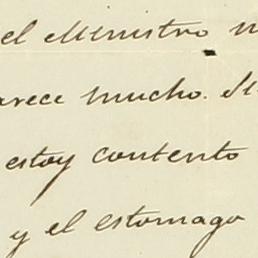 el Ministro
arece mucho.
estoy contento
y el estomago